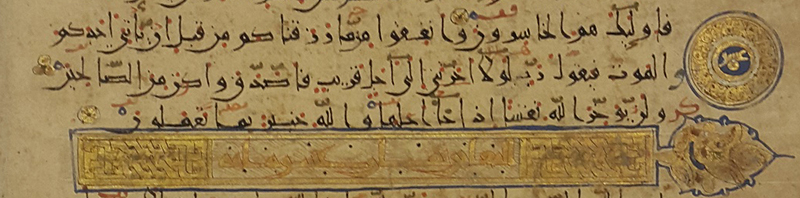 فاولئك هم الخاسرون وانفقوا مما رزقناكم من قبل ان ياتي احدكم
الموت فيقول رب لولا اخرتني الى اجل قريب فاصدق واكن من الصالحين
ولن يؤخر الله نفسا اذا جا اجلها والله خبير بما تعملون
التغابن